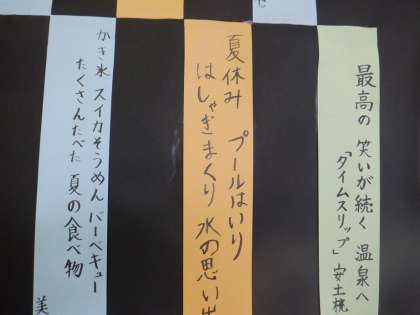 最高の 笑いが続く 温泉へ
「タイムスリップ」安土桃
夏休み プールはいり
はしゃぎまくり 水の思い出
かき氷 スイカそうめん バーベキュー
たくさんたべた 夏の食べ物
美